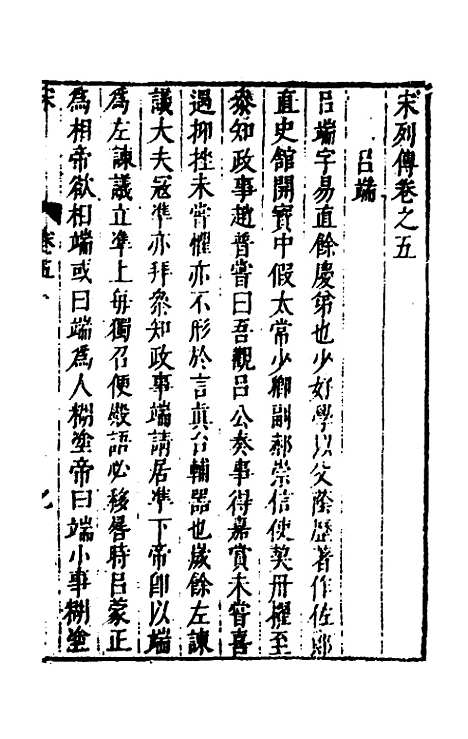 宋列傳卷之五
吕端
吕端字易直餘慶弟也少好學以父蔭歷著作佐郎
直史館開寶中假太常少卿副郝崇信使契丹擢至
叅知政事趙普嘗曰吾觀吕公奏事得嘉賞未甞喜
遇抑挫未甞懼亦不形於言真台輔器也歲餘左諫
議大夫冦準亦拜叅知政事端請居準下帝即以端
為左諫議立準上毎獨召便殿語必移晷時吕蒙正
為相帝欲相端或曰端為人糊塗帝曰端小事糊塗
卷五